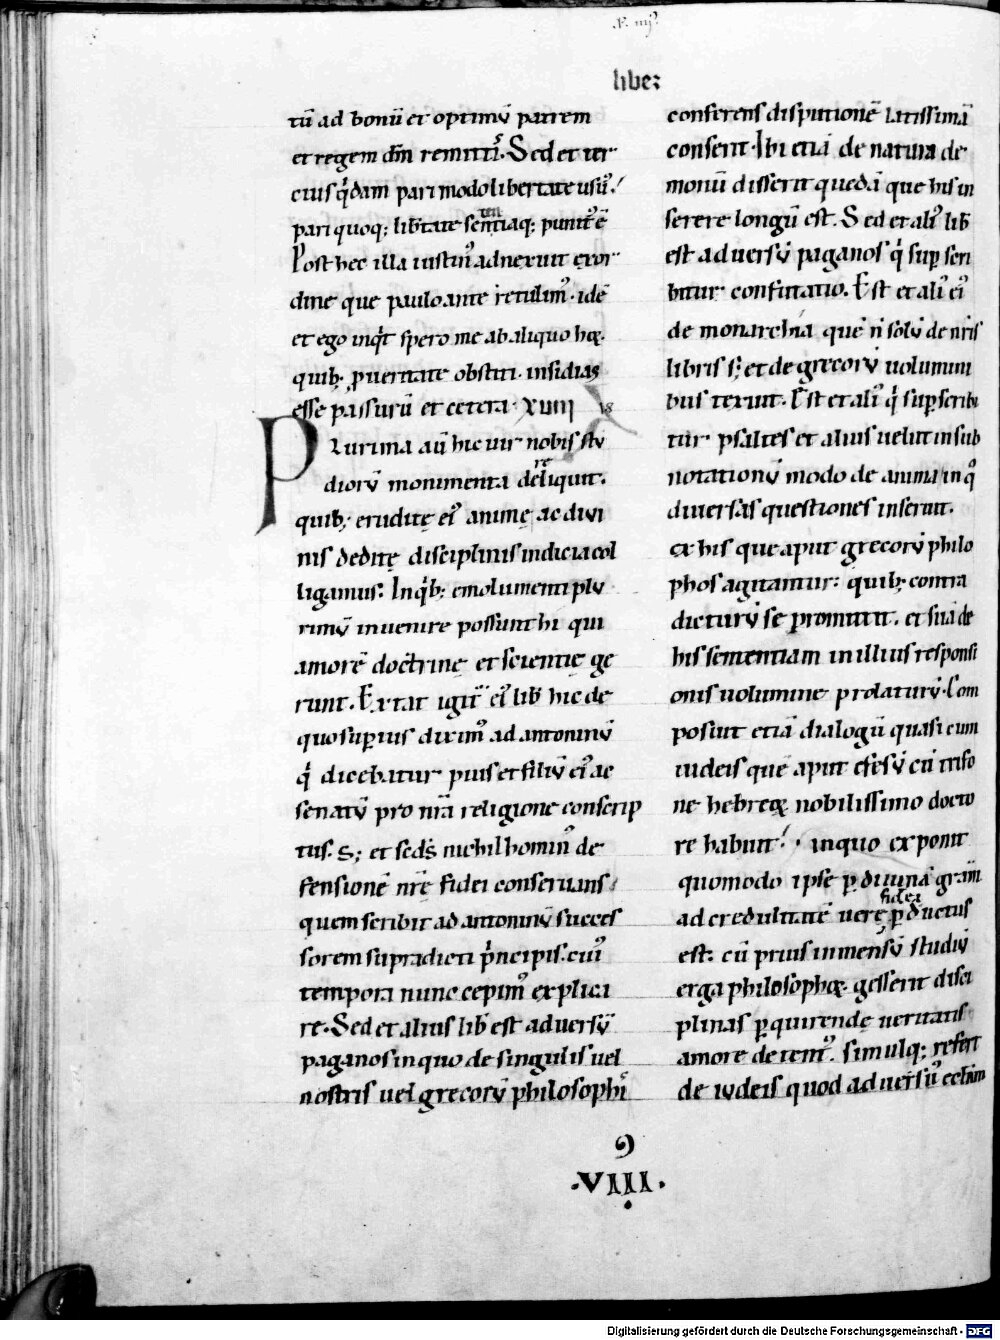 liber
tū ad bonū et optimū patrem
et regem dn̄m remitti. Sed et ter
cius q̇dam pari modo libertate usus.
pari quoq; lib̄tate sententiaq; punit' ē
Post hec illa iustin' adnexuit ex or
dine que paulo ante retulim'. idē
et ego inq̇t spero me ab aliquo hoꝝ.
quib; p ueritate obstiti. insidias
esse passurū et cetera. XVIII
Plurima aū hic uir nobis stu
diorū monimenta dereliquit.
quib; erudite ei' anime ac divi
nis dedite disciplinis indicia col
ligamus. In q̇b; emolumenti plu
rimū inuenire possunt hi qui
amorē doctrine et scientie ge
runt. Extat igit' ei' lib̄ hic de
quo superius dixim' ad antoninū
q̇ dicebatur pius et filiū ei' ac
senatū pro nr̄a religione conscrip
tus. S; et sed's nichilhomin' de
fensionē nr̄ę fidei conseruans
quem scribit ad antoninū succes
sorem supradicti ṗncipis. cui'
tempora nunc cepim' explica
re. Sed et alius lib̄ est aduersū
paganos in quo de singulis uel
nostris uel grecorū philosophis
conferens disputionē latissimā
conserit. Ibi etiā de natura de
monū disserit quedā que his in
serere longū est. Sed et ali' lib̄
est aduersū paganos q̇ sup scri
bitur confutatio. Est et ali' ei'
de monarchia que n̄ solū de nr̄is
libris s; et de grecorū uolumini
bus texuit. Est et ali' q̇ sup scribi
tur psaltes et alius uelut in sub
notationū modo de anima in q°
diuersas questiones inseruit.
ex his que aput grecorū philo
phos agitantur: quib; contra
dicturū se promittit. et suā de
his sententiam in illius responsi
onis uolumine prolaturū. Com
posuit etiā dialogū quasi cum
iudeis quē aput efesū cū trifo
ne hebreoꝝ nobilissimo docto
re habuit. in quo exponit
quomodo ipse p diuinā gram̄
ad credulitatē uerę fidei pductus
est. cū prius inmensū studiū
erga philosophoꝝ. gesserit disci
plinas pquirendę ueritatis
amore detent'. simulq; refert
de iudeis quod aduersū ecclam
9
.VIII.
Digitalisierung gefördert durch die Deutsche Forschungsgemeinschaft - DFG